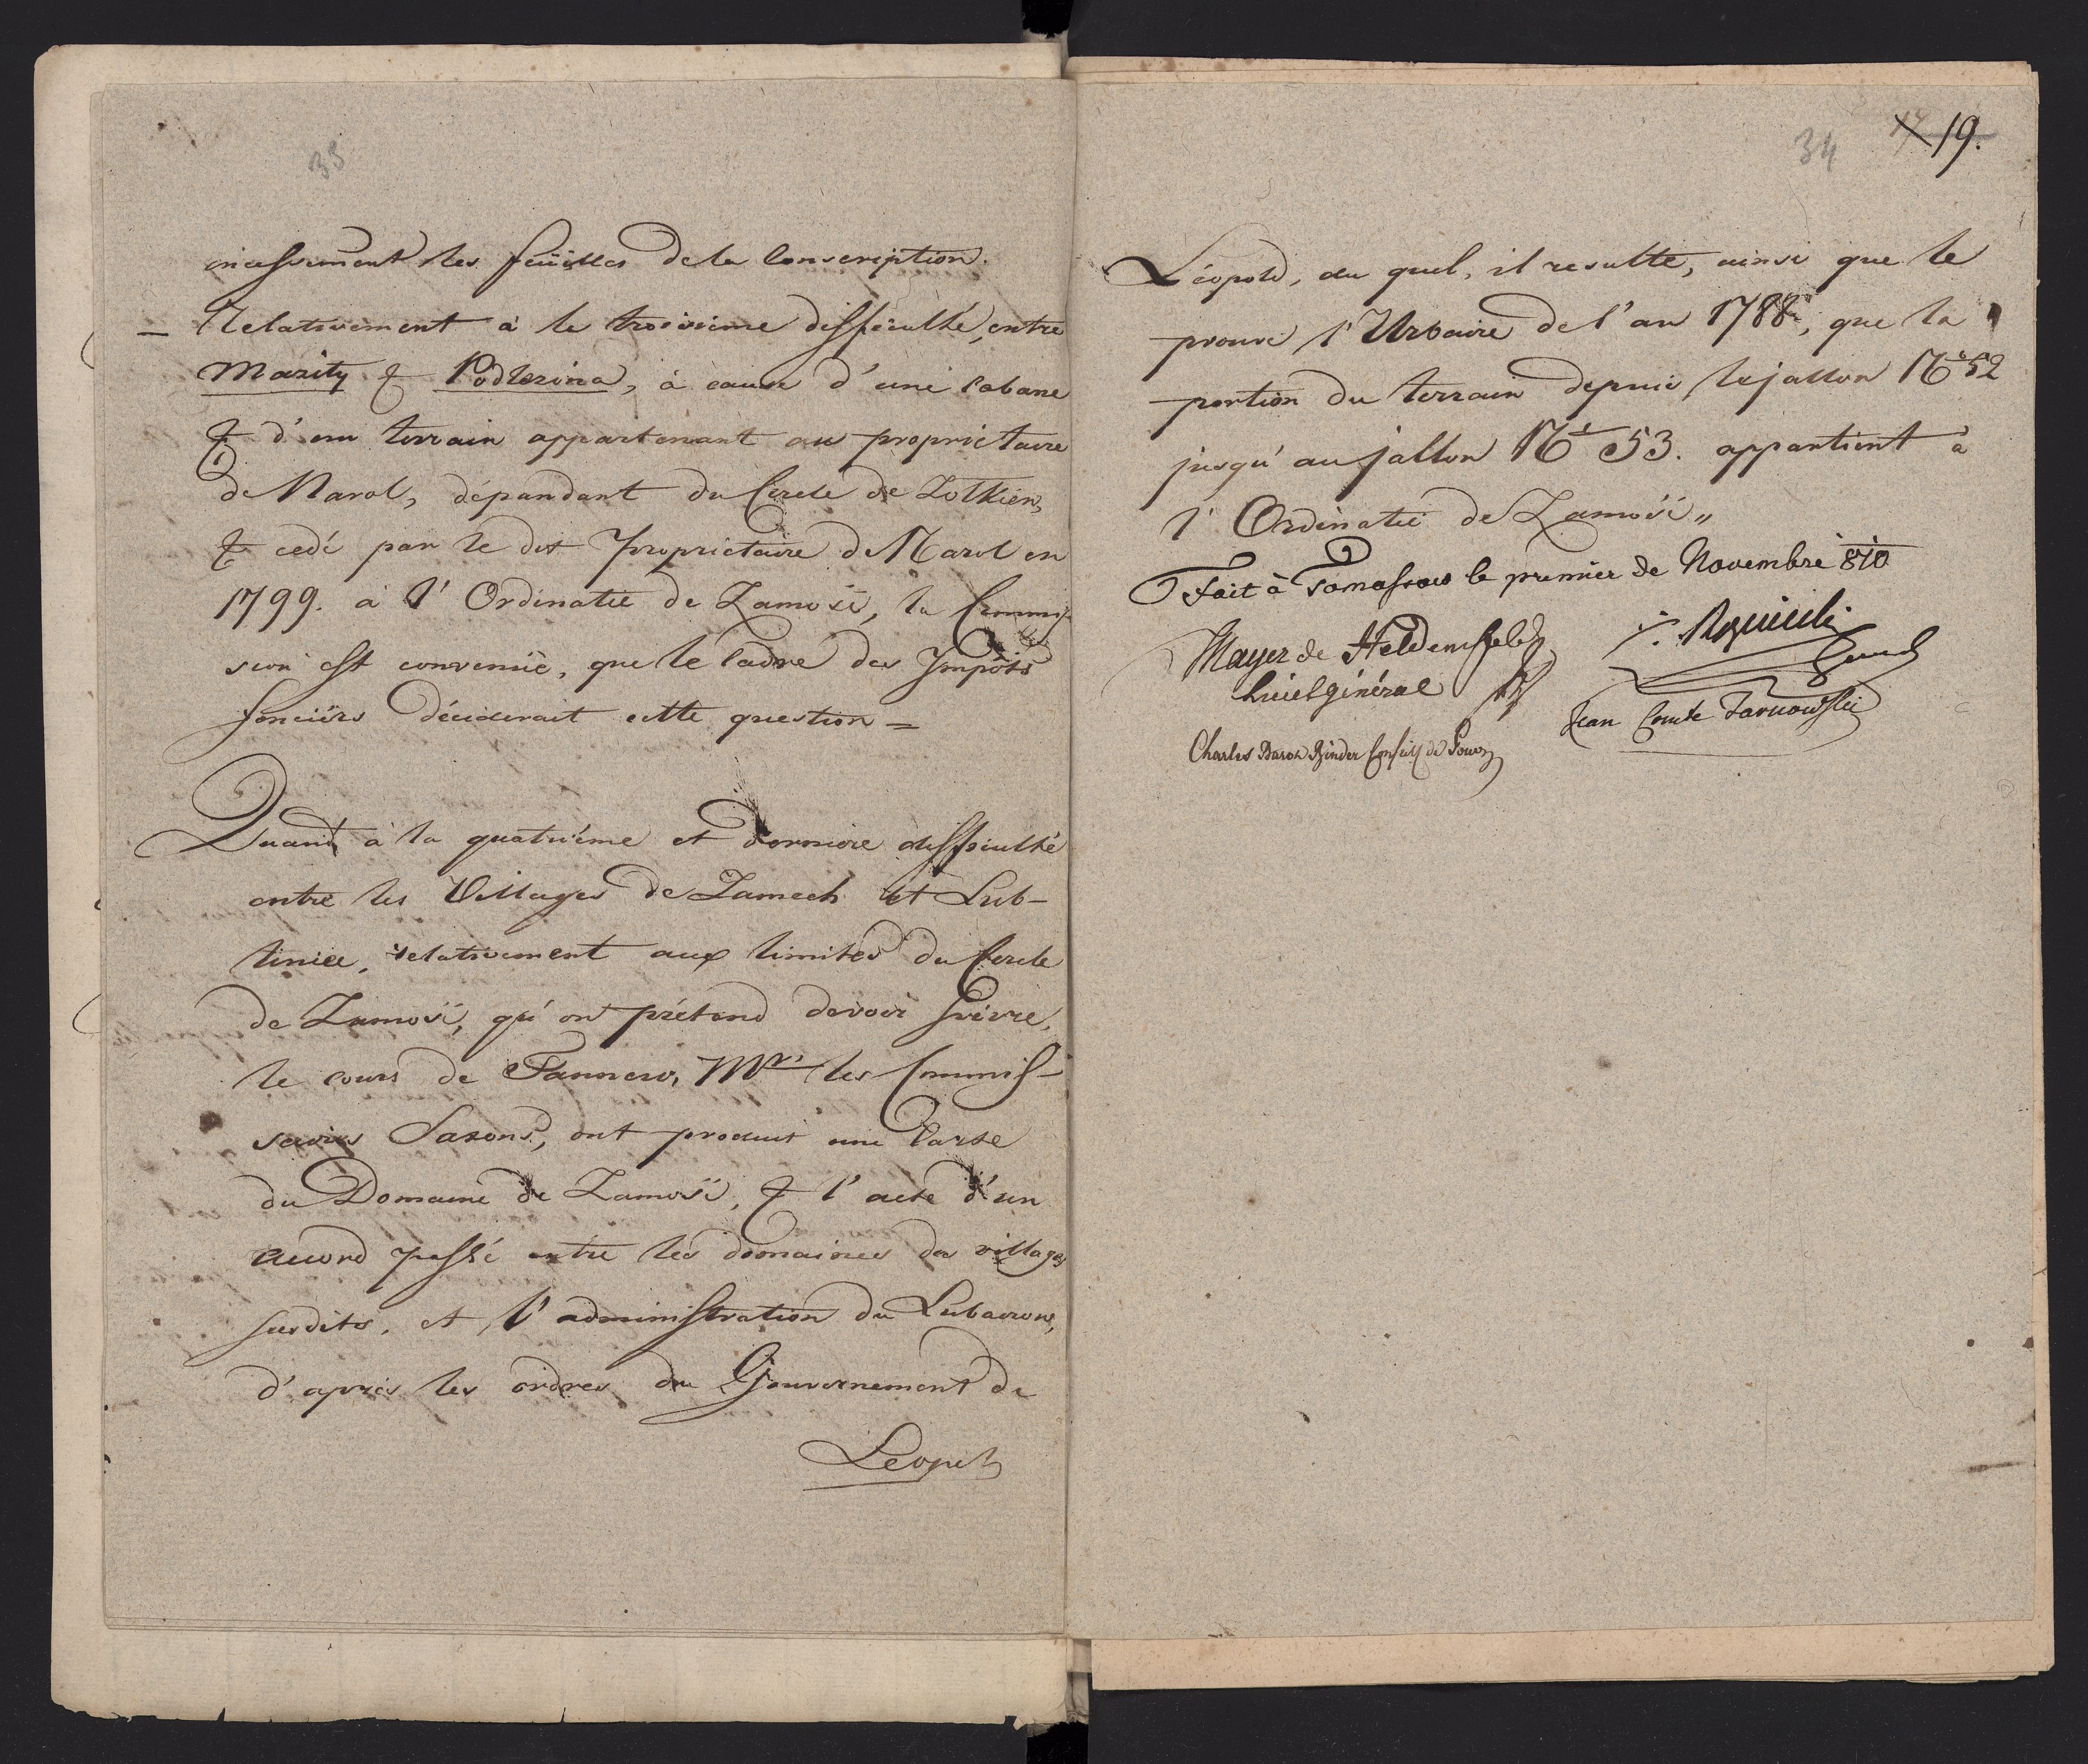 33
incessement les feüilles de la Conscription.
– Relativement à la troisieme difficulté, entre
Mazily & Podlezina, à cause d'une Cabane
& d'un terrain appartenant au proprietaire
de Narol, dépandant du Cercle de Zolkien,
& cedé par le dit Proprietaire de Narol en
1799. à l'Ordinatie de Zamosč, la Commis-
sion est convenüe, que le Cadre des Impôts
fonciërs déciderait cette question =
Quant à la quatriéme et derniere difficulté
entre les Villages de Zamech et Lub-
liniec, relativement aux limites du Cercle
de Zamosč, qu'on prétend devoir suivre,
le cours de Tannew, Mrs les Commis-
saires Saxons, ont produit une Carte
du Domaine de Zamosč, & l'acte d'un
accord passé entre les domaines des villages
susdits, et l'administration du Lubaczow,
d'après les ordres du Gouvernement de
Leopol
34 19.
Léopold, du quel, il resulte, ainsi que le
prouve l'Urbaire de l'an 1788, que la
portion du terrain depuis le jallon No 52
jusqu'au jallon No 53. appartient à
l'Ordinatie de Zamosč „
Fait à Tomassow le premier de Novembre 810
Mayer de Heldensfeld
Général
Jean Comte Tarnowski
Charles Baron Binder Conseill de Gouv